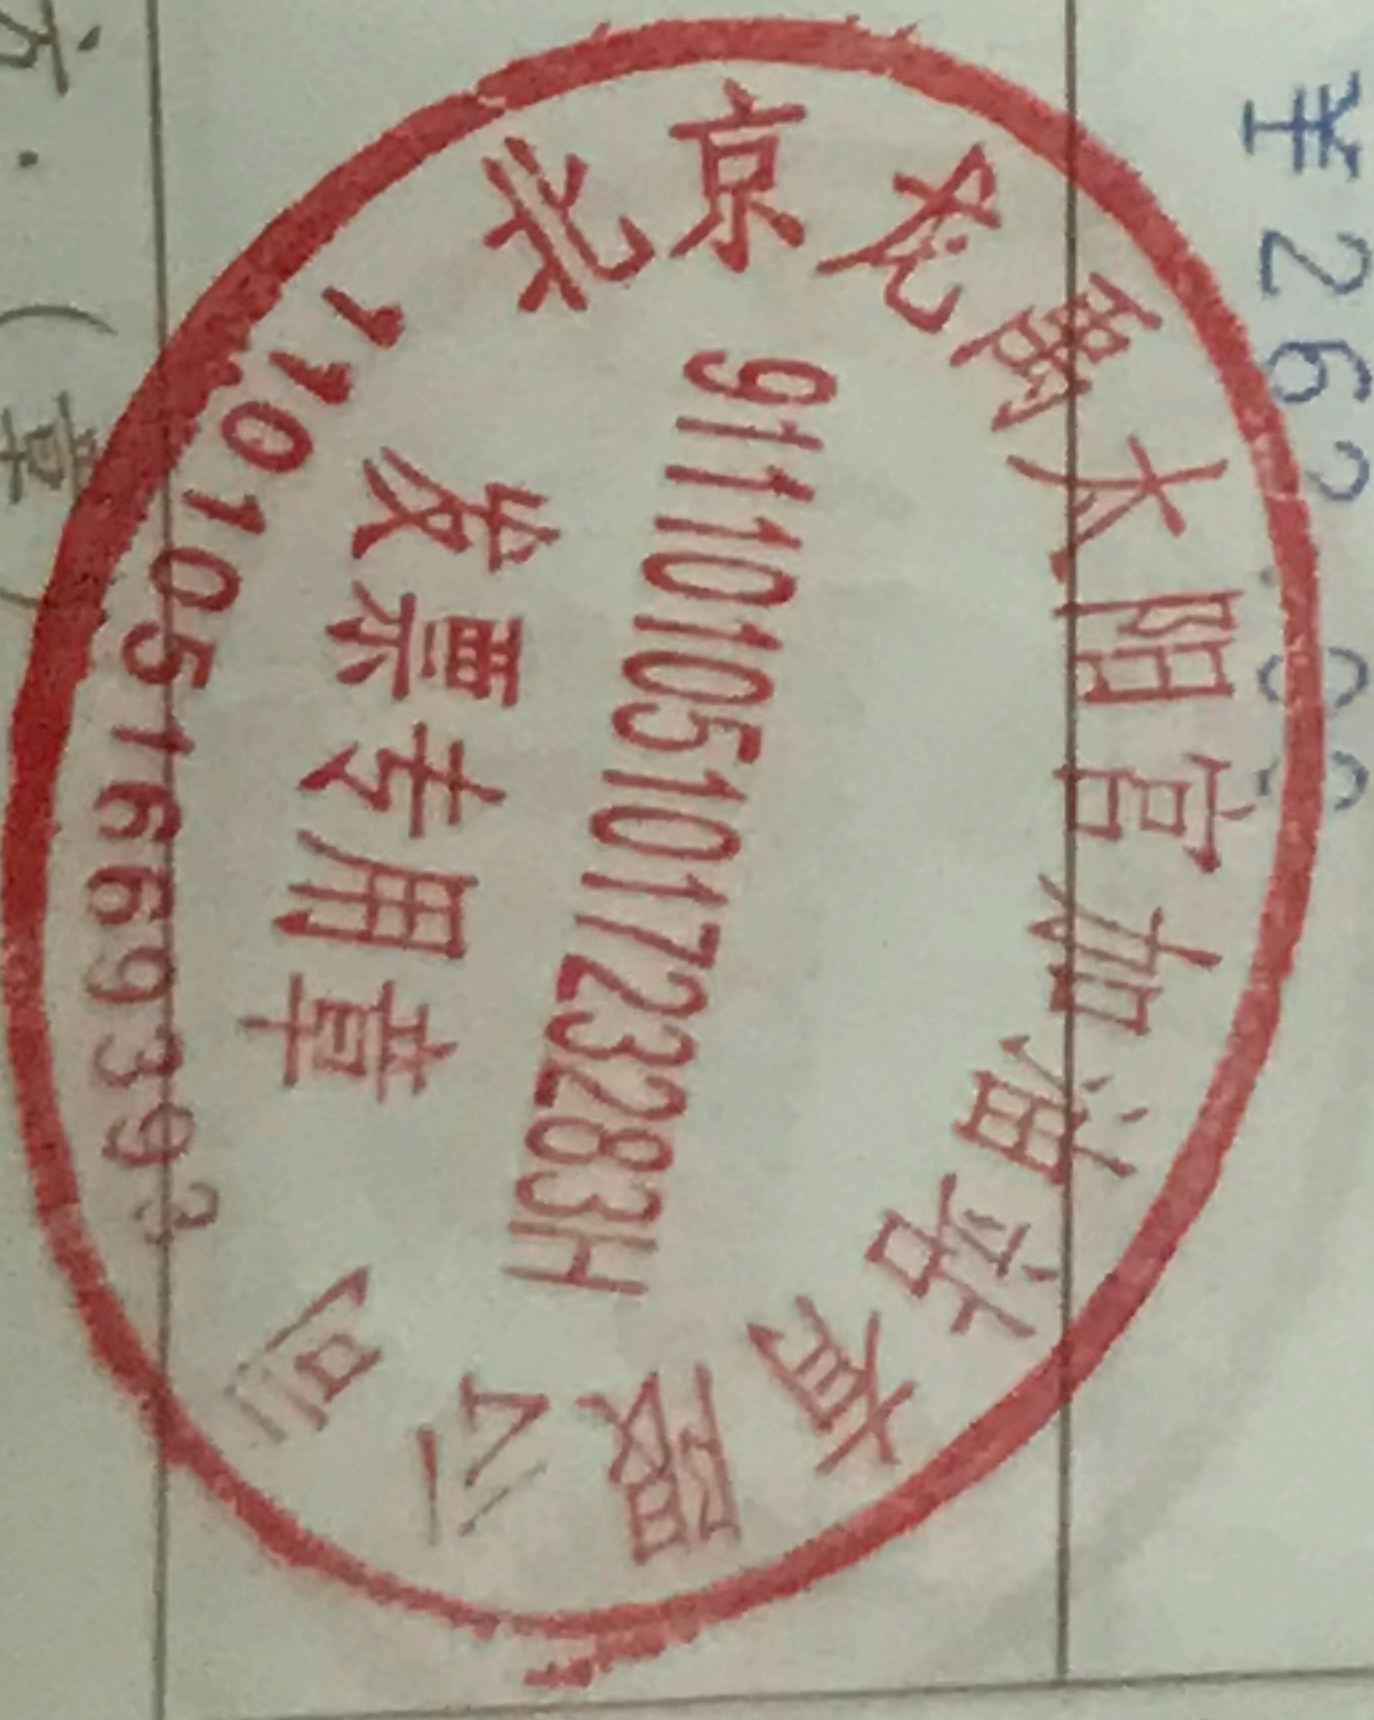 ¥262.00
北京龙禹太阳宫加油站有限公司
91110105101723283H
发票专用章
1101051669393
方：（章）